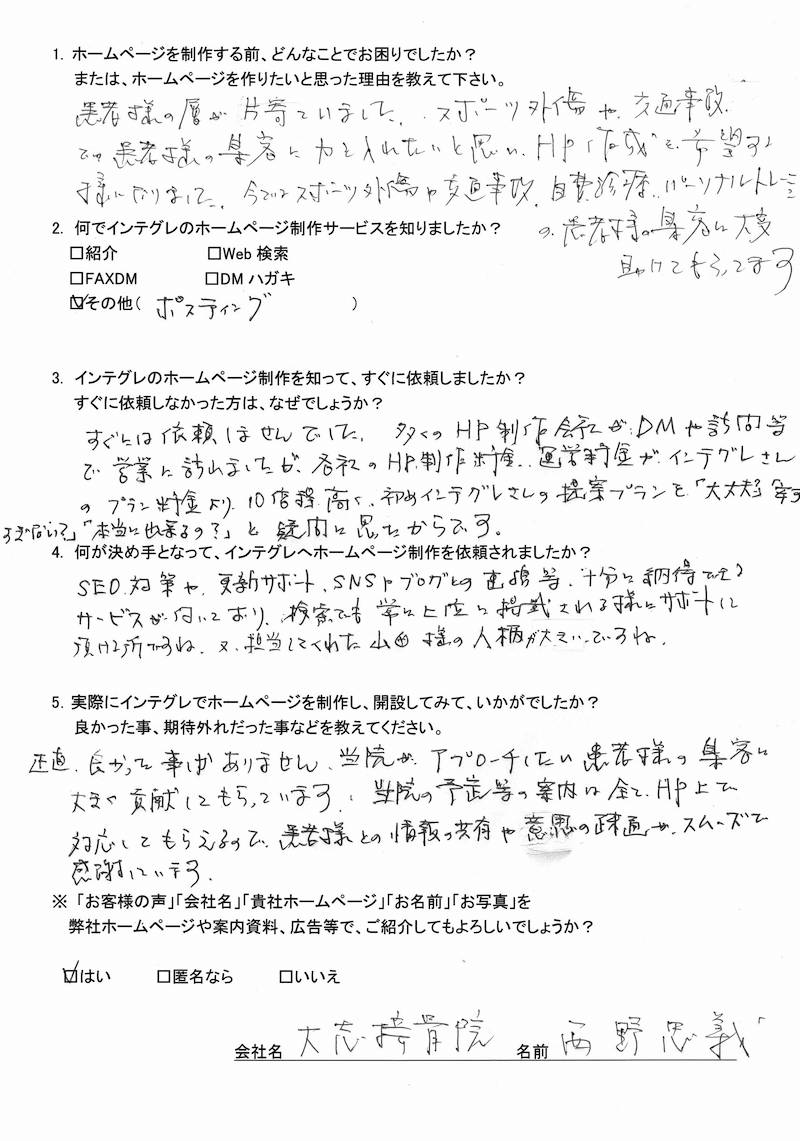 1. ホームページを制作する前、どんなことでお困りでしたか？
または、ホームページを作りたいと思った理由を教えて下さい。
患者様の層が片寄ていました。スポーツ外傷や、交通事故
での患者様の集客に力を入れたいと思い、HP作成を希望する
様になりました。今ではスポーツ外傷や交通事故、自費診療、パーソナルトレーニング
の患者様の集客に大変
助けてもらってます
2. 何でインテグレのホームページ制作サービスを知りましたか？
□紹介 □Web 検索
□FAXDM □DM ハガキ
☑その他( ポスティング )
3. インテグレのホームページ制作を知って、すぐに依頼しましたか？
すぐに依頼しなかった方は、なぜでしょうか？
すぐには依頼しませんでした。多くのHP制作会社がDMや訪問等
で営業に訪れましたが、各社のHP制作料金、運営料金が、インテグレさん
のプラン料金より、10倍程高く、初めインテグレさんの提案プランを「大丈夫？安す
すぎない？」「本当に出来るの？」と疑問に思たからです。
4. 何が決め手となって、インテグレへホームページ制作を依頼されましたか？
SEO対策や、更新サポート、SNSやブログとの連携等、十分に納得できる
サービスが付いており、検索でも常に上位に掲載される様にサポートして
頂ける所ですね。又、担当してくれた山田様の人柄が大きいですね。
5. 実際にインテグレでホームページを制作し、開設してみて、いかがでしたか？
良かった事、期待外れだった事などを教えてください。
正直、良かった事しかありません、当院がアプローチしたい患者様の集客に
大きく貢献してもらっています。当院の予定等の案内は全て、HP上で
対応してもらえるので、患者様との情報の共有や意思の疎通が、スムーズで
感謝しています。
※ 「お客様の声」「会社名」「貴社ホームページ」「お名前」「お写真」を
弊社ホームページや案内資料、広告等で、ご紹介してもよろしいでしょうか？
☑はい □匿名なら □いいえ
会社名 大志接骨院 名前 西野忠義